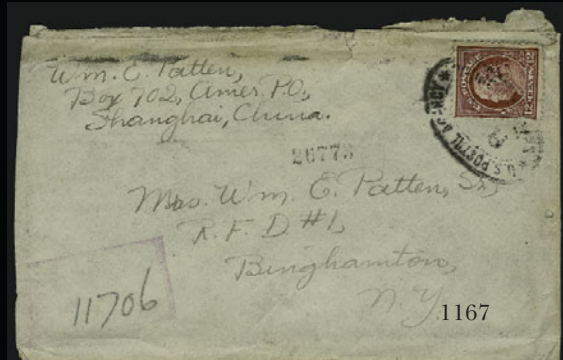 Wm. E. Patten,
Box 702, Amer. P.O,
Shanghai, China.
U.S. POSTAL AGENCY
12 CENTS 12
26773
Mrs. Wm. E. Patten, Sr,
R. F. D #1,
Binghamton,
N.Y.
11706
1167